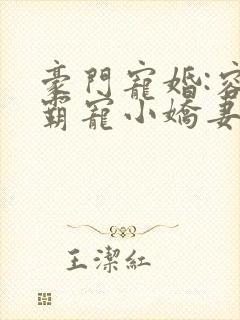 豪門寵婚:容
霸寵小嬌妻
王潔紅